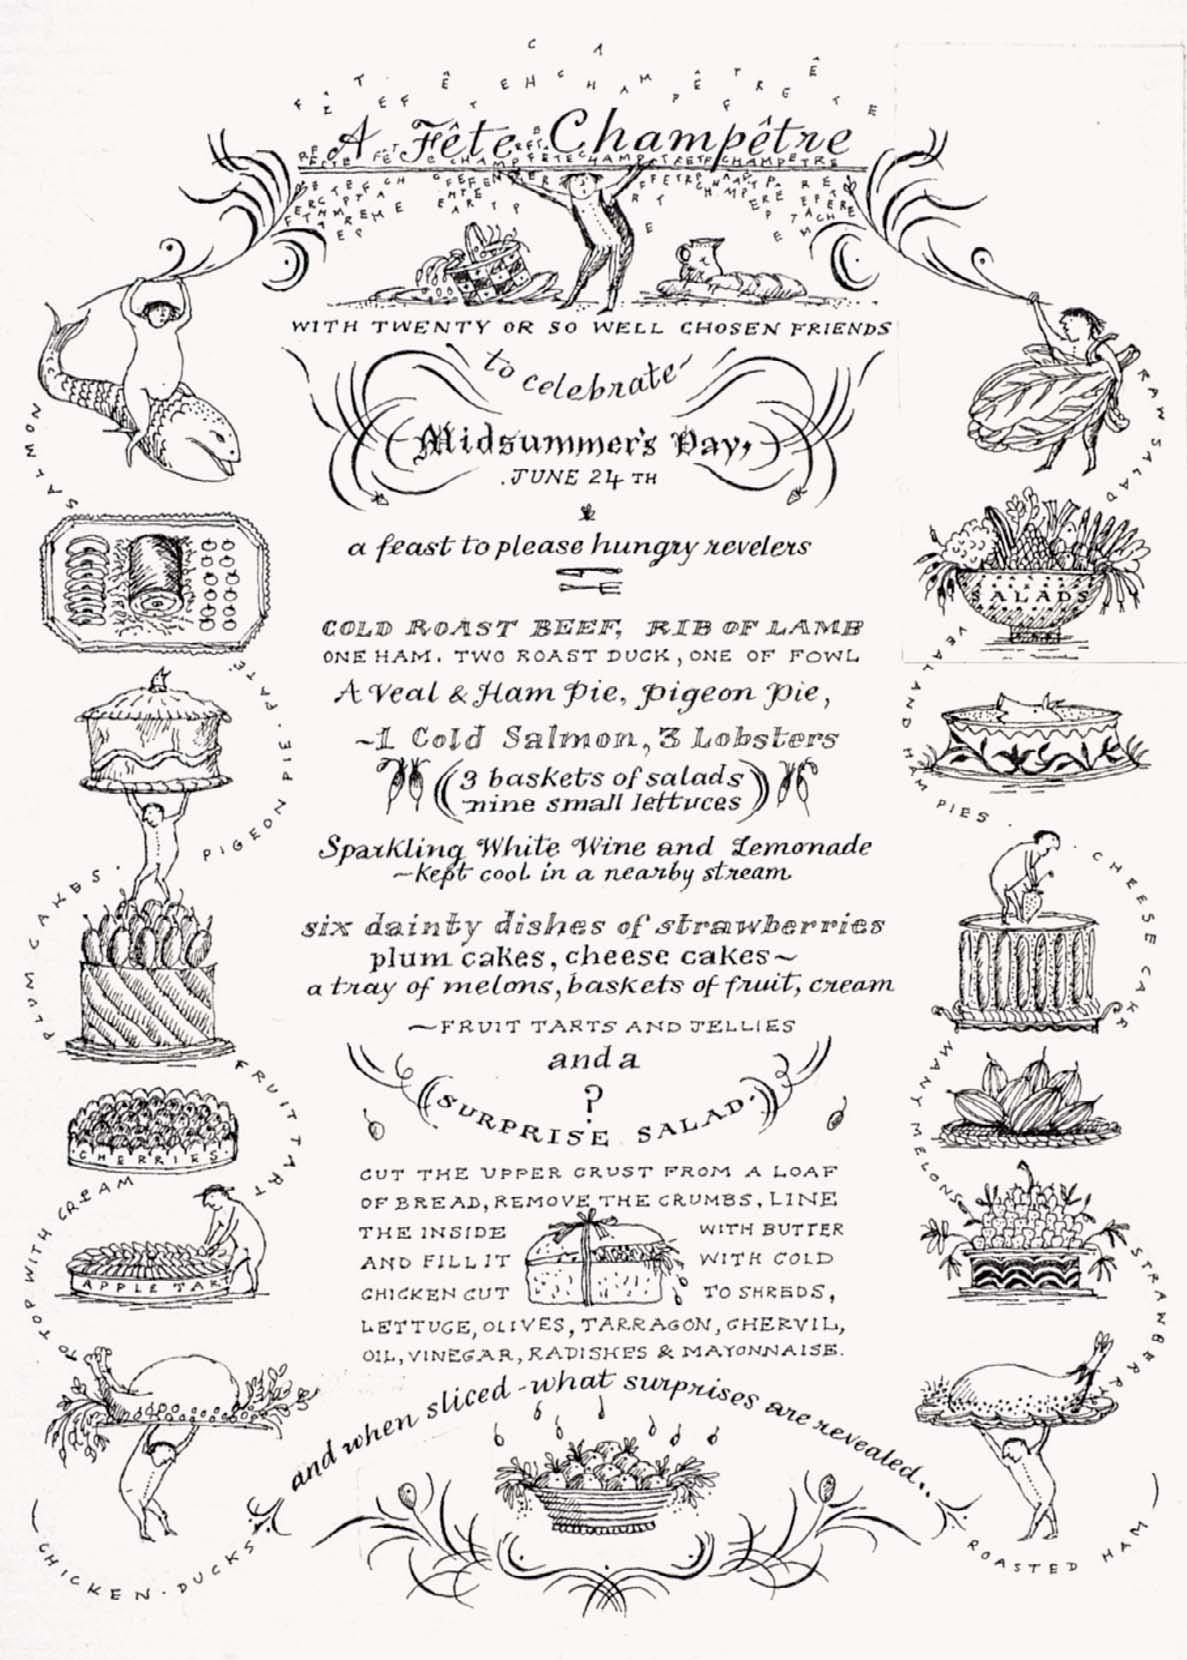 A Fête Champêtre
WITH TWENTY OR SO WELL CHOSEN FRIENDS
to celebrate
Midsummer's Day,
JUNE 24 TH
a feast to please hungry revelers
COLD ROAST BEEF, RIB OF LAMB
ONE HAM. TWO ROAST DUCK, ONE OF FOWL
A Veal & Ham Pie, Pigeon Pie,
~1 Cold Salmon, 3 Lobsters
(3 baskets of salads
nine small lettuces)
Sparkling White Wine and Lemonade
~kept cool in a nearby stream
six dainty dishes of strawberries
plum cakes, cheese cakes~
a tray of melons, baskets of fruit, cream
~FRUIT TARTS AND JELLIES
and a
?
(SURPRISE SALAD.)
CUT THE UPPER CRUST FROM A LOAF
OF BREAD, REMOVE THE CRUMBS, LINE
THE INSIDE WITH BUTTER
AND FILL IT WITH COLD
CHICKEN CUT TO SHREDS,
LETTUCE, OLIVES, TARRAGON, CHERVIL,
OIL, VINEGAR, RADISHES & MAYONNAISE.
and when sliced - what surprises are revealed..
SALMON
PIGEON PIE. PATÉ
PLUM CAKES.
FRUIT TART
CHERRIES.
TO TOP WITH CREAM
APPLE TART
CHICKEN. DUCKS
RAW SALAD
SALADS
VEAL AND HAM PIES.
CHEESE CAKE
MANY MELONS
STRAWBERRY
ROASTED HAM